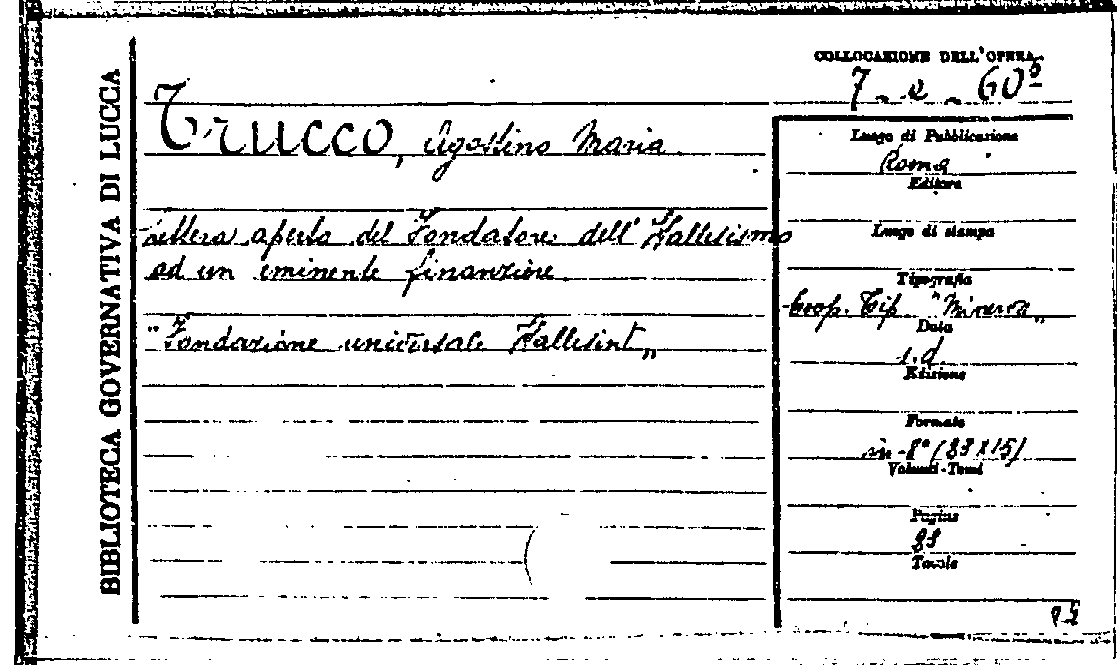 BIBLIOTECA GOVERNATIVA DI LUCCA
COLLOCAZIONE DELL'OPERA
7 - 2 - 60⁵
TRUCCO, Agostino Maria.
Lettera aperta del Fondatore dell'
ad un eminente finanziere.
"Fondazione universale
Luogo di Pubblicazione
Roma
Editore
Luogo di stampa
Tipografia
Coop. Tip. "Minerva"
Data
s.d.
Edizione
Formato
in-8°
Volumi-Tomi
Pagine
Tavole